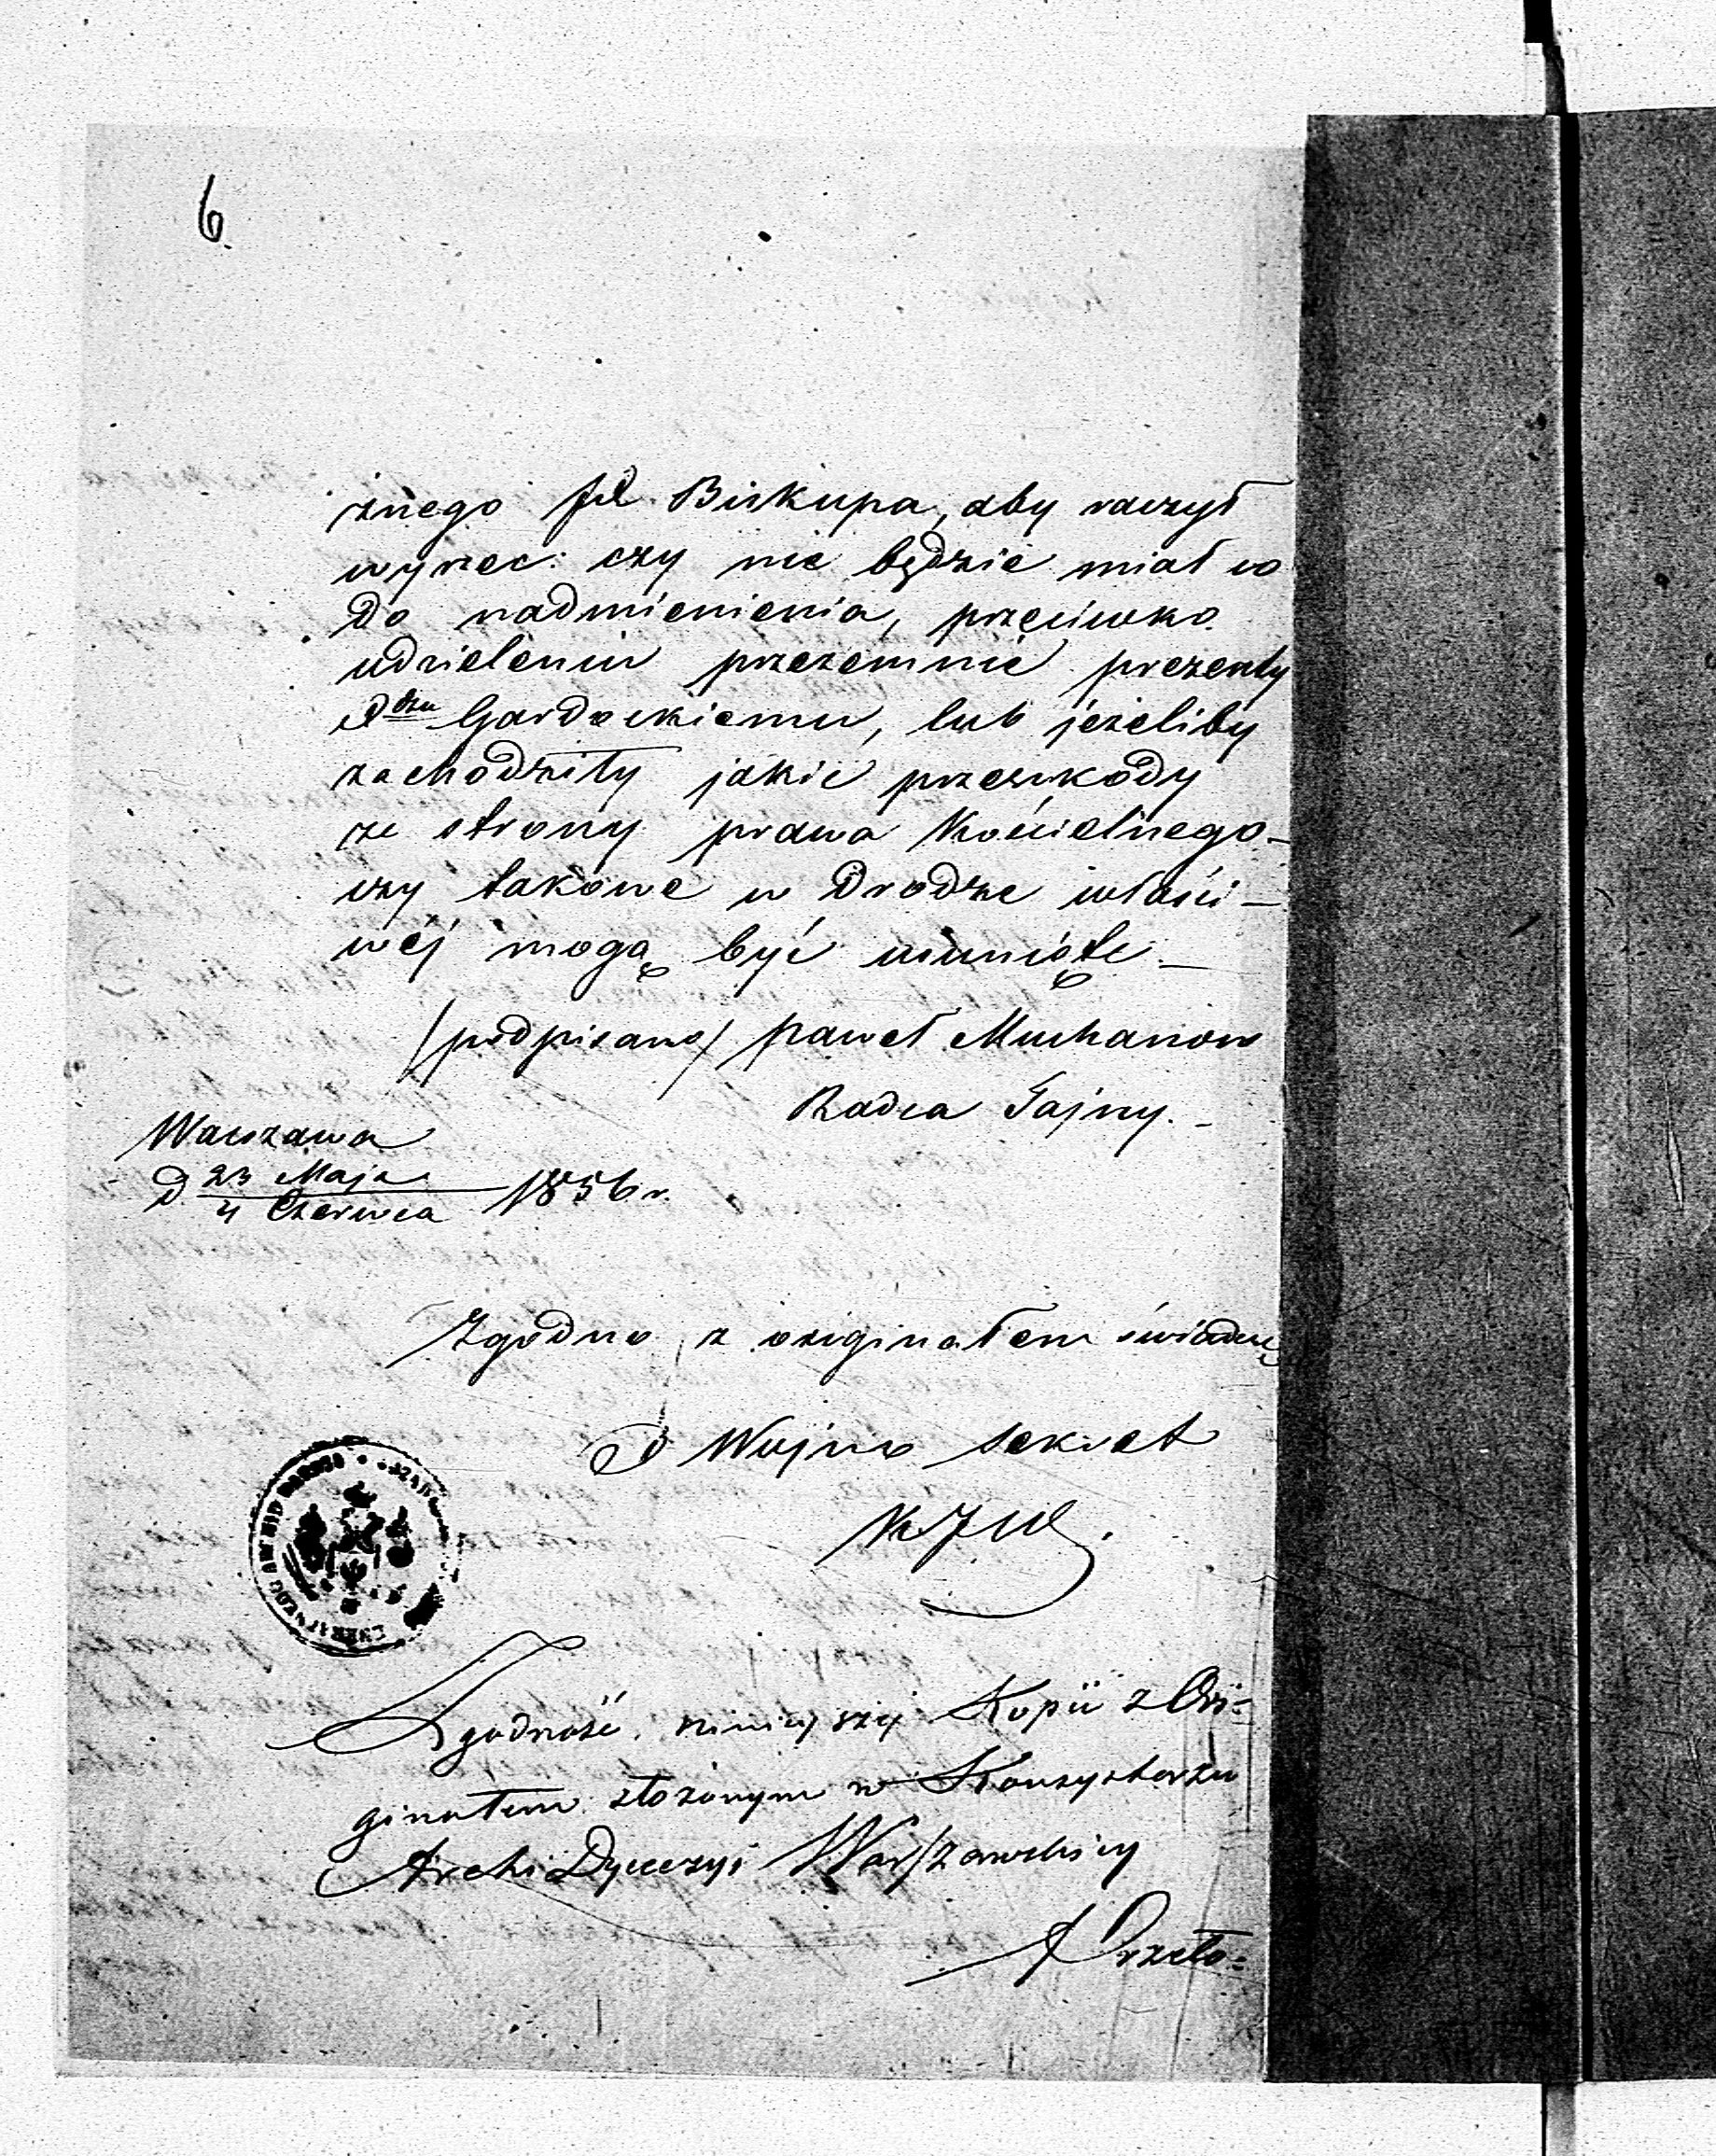 6.
żnego JX Biskupa, aby raczył
wyrzec: czy nie będzie miał co
do nadmienienia, przeciwko
udzieleniu przezemnie prezenty
Xdzu Gardockiemu, lub jeżeliby
zachodziły jakie przeszkody
ze strony prawa Kościelnego –
czy takowe w drodze właści –
wéj mogą być usunięte –
/podpisano/ Paweł Muchanow
Radca Tajny. –
Warszawa
d 23 Maja
4 Czerwca 1856 r.
Zgodno z originałem świadczę
X Wojno Sekret
Zgodność ninieyszey Kopii z Ori=
ginałem złożonym w Konsystorzu
Archi Dyecezyi Warszawskiey
Przeło=